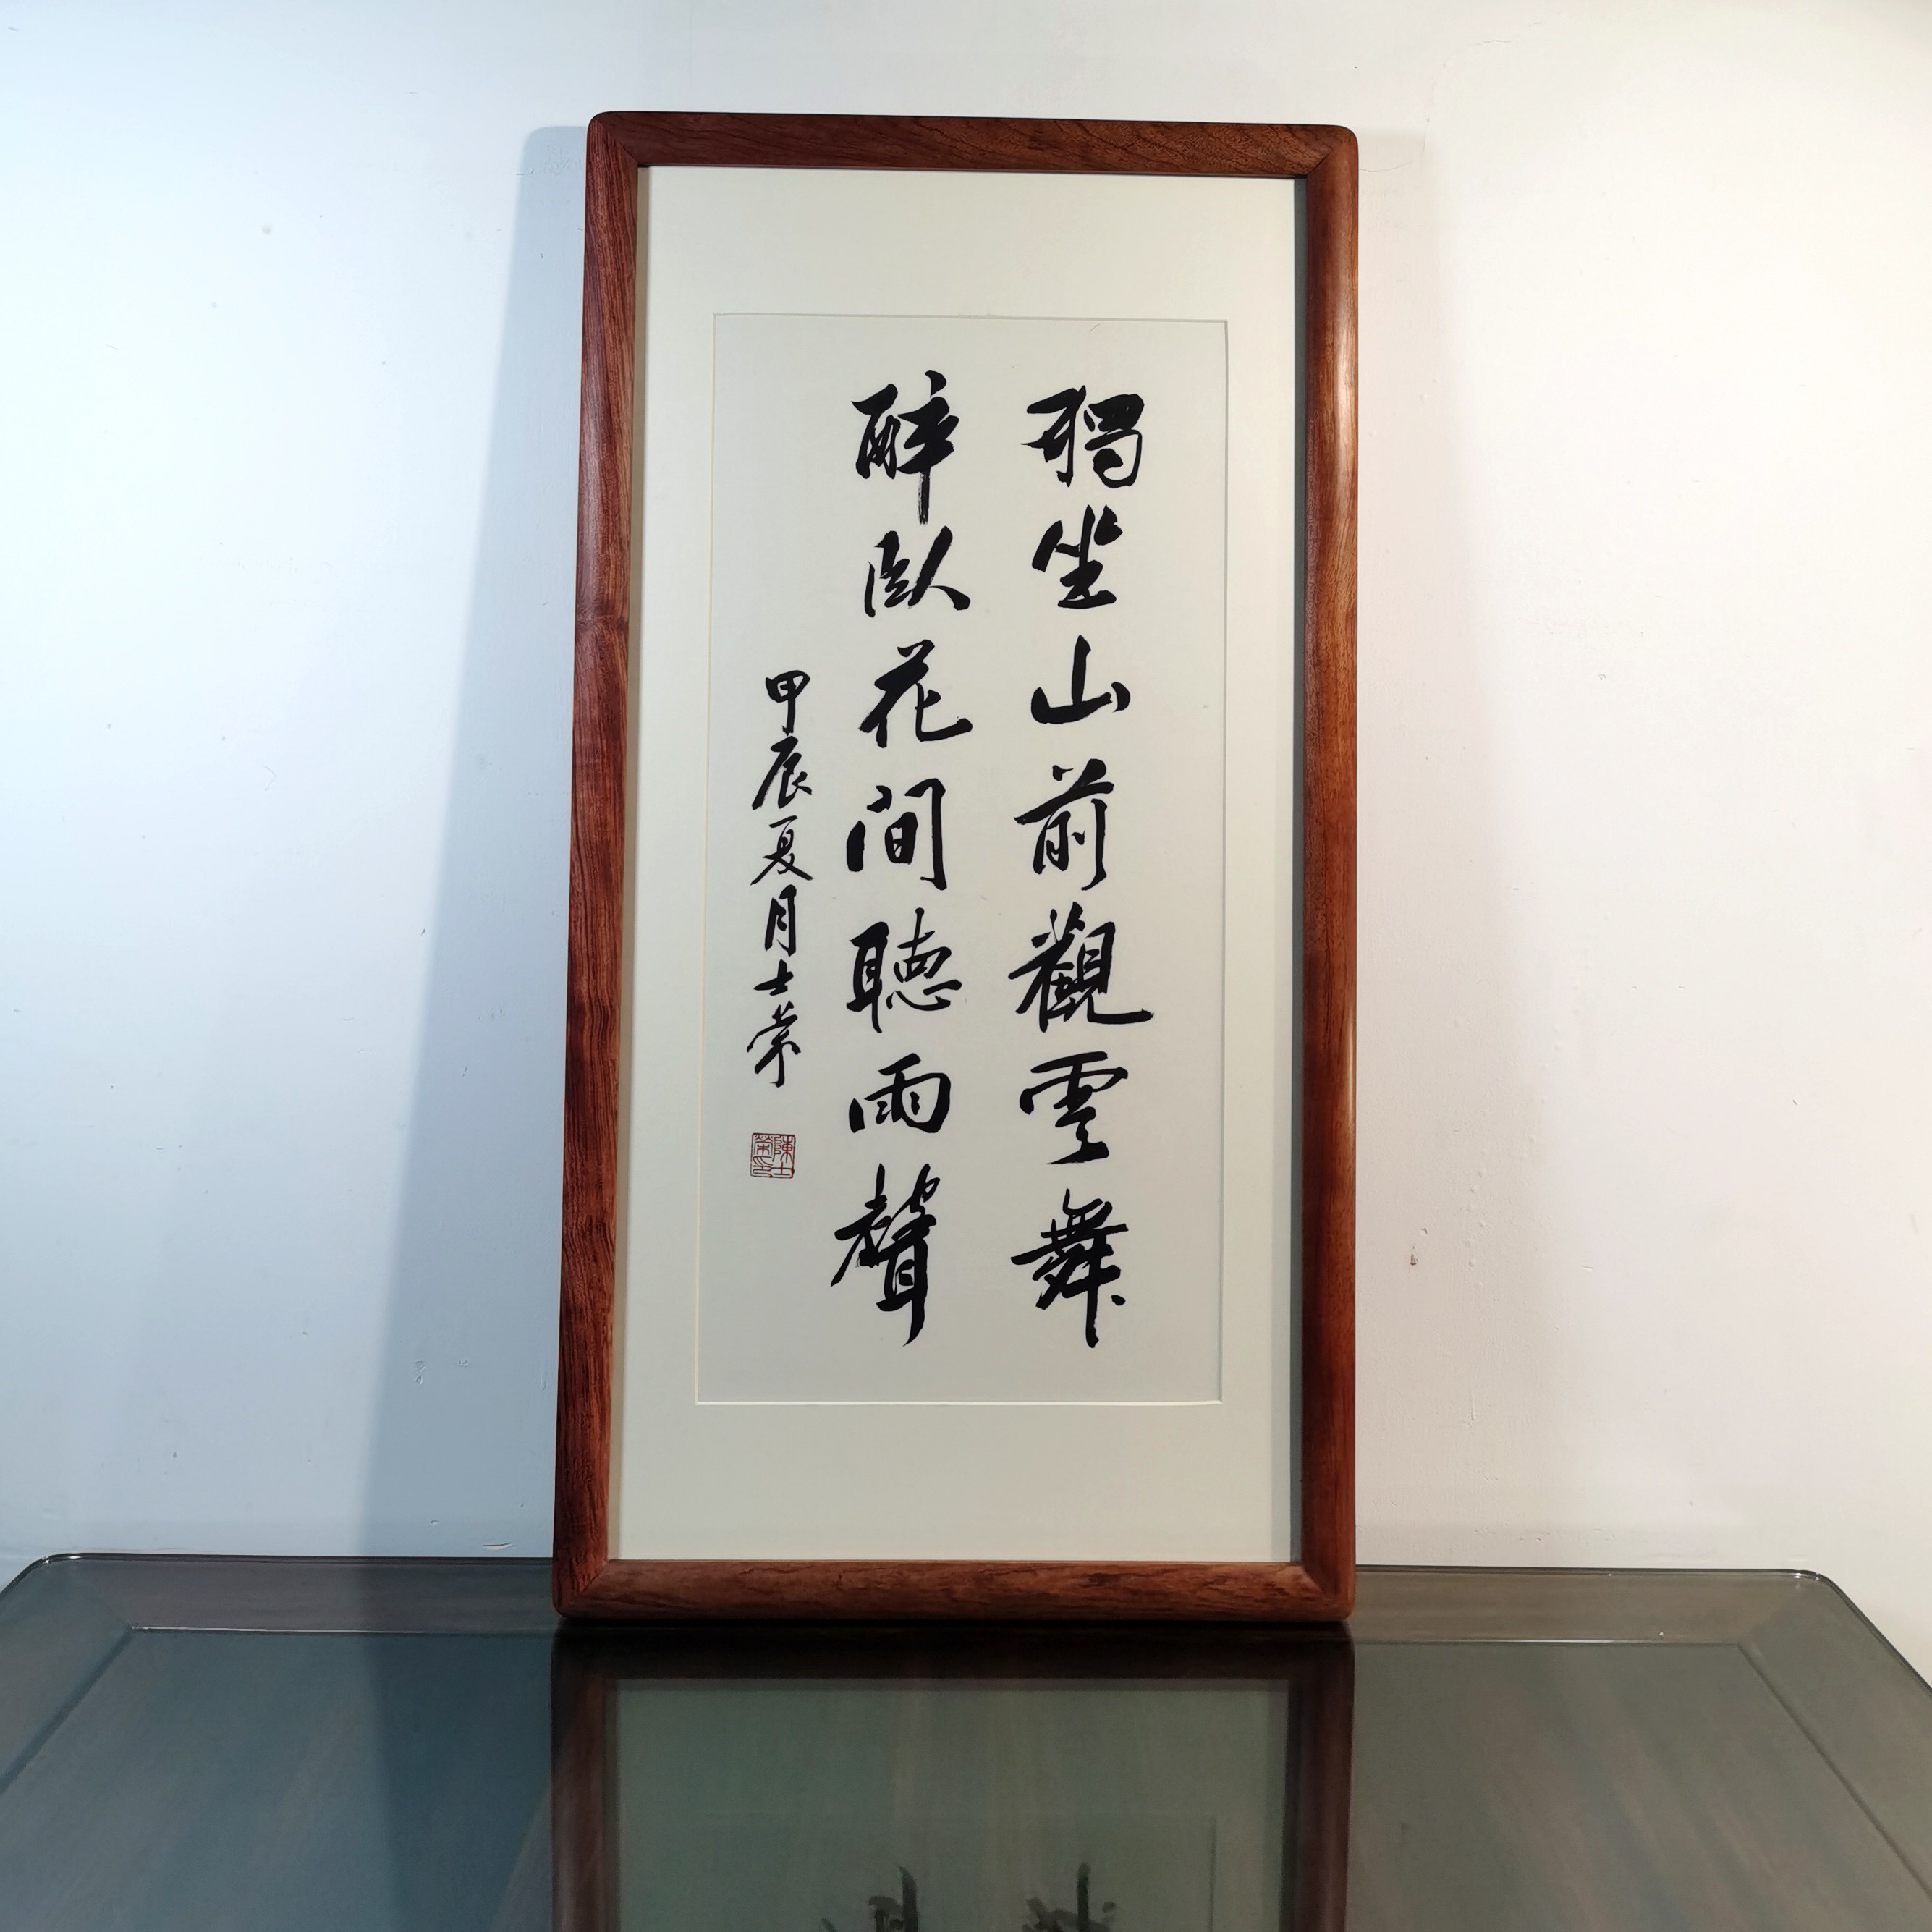 獨坐山前觀雲舞
醉臥花間聽雨聲
甲辰夏月士榮
陳士榮印